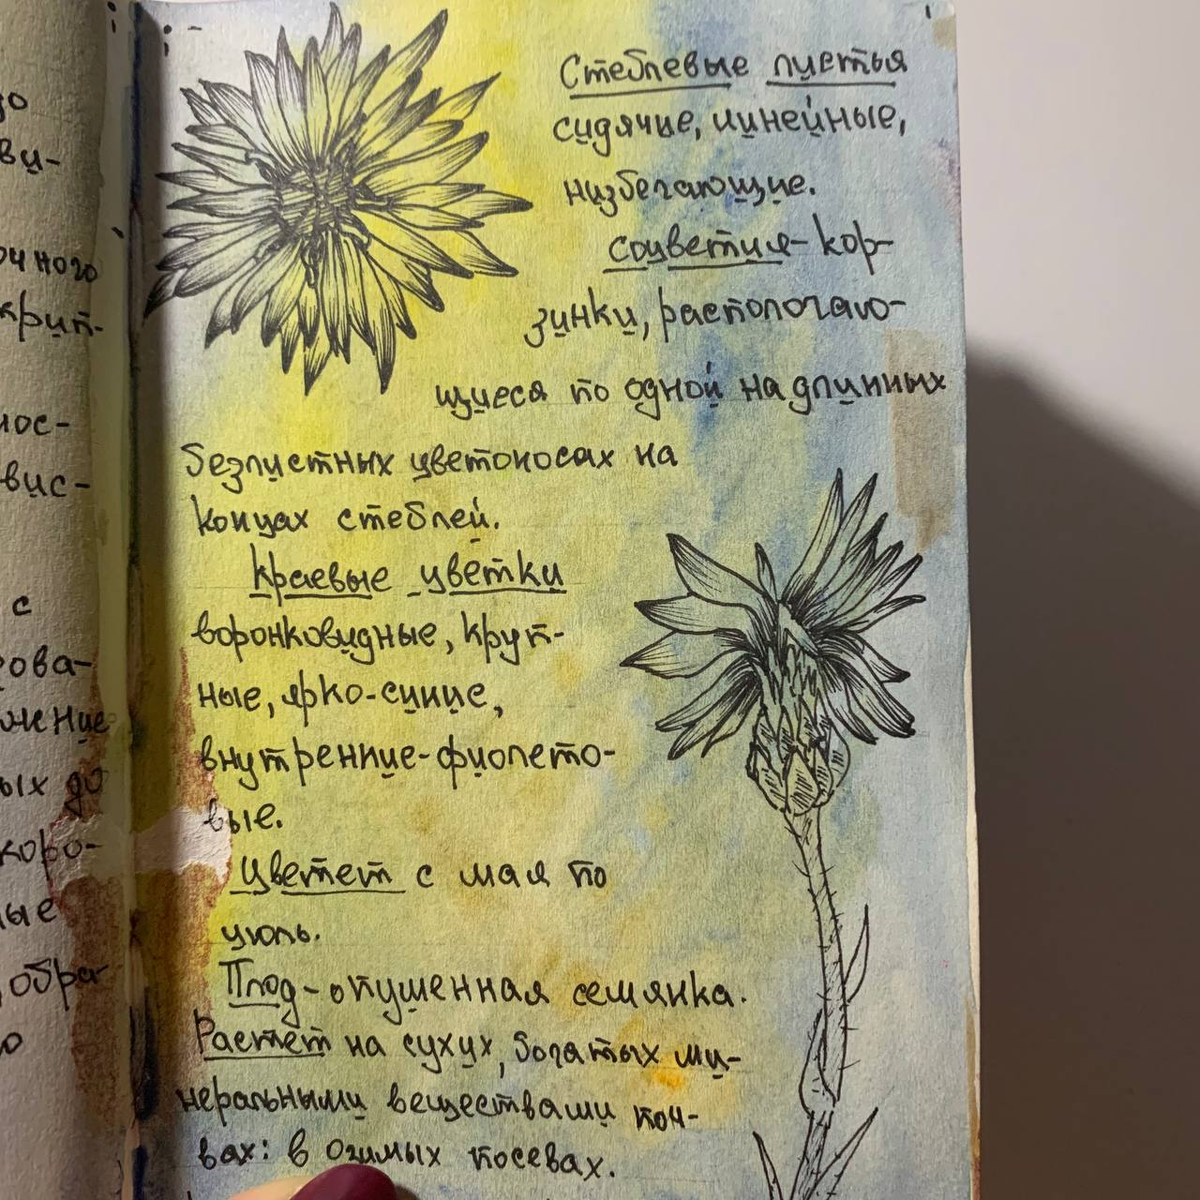 зо
ви-
очного
крип-
нос-
вис-
с
рова-
жение
ых до
коро-
ые
обра-
о
Стеблевые листья
сидячие, линейные,
низбегающие.
соцветия-кор-
зинки, располагаю-
щиеся по одной на длинных
безлистных цветоносах на
концах стеблей.
Краевые цветки
воронковидные, круп-
ные, ярко-синие,
внутренние-фиолето-
вые.
Цветет с мая по
июль.
Плод-опушенная семянка.
Растет на сухих, богатых ми-
неральными веществами поч-
вах: в озимых посевах.